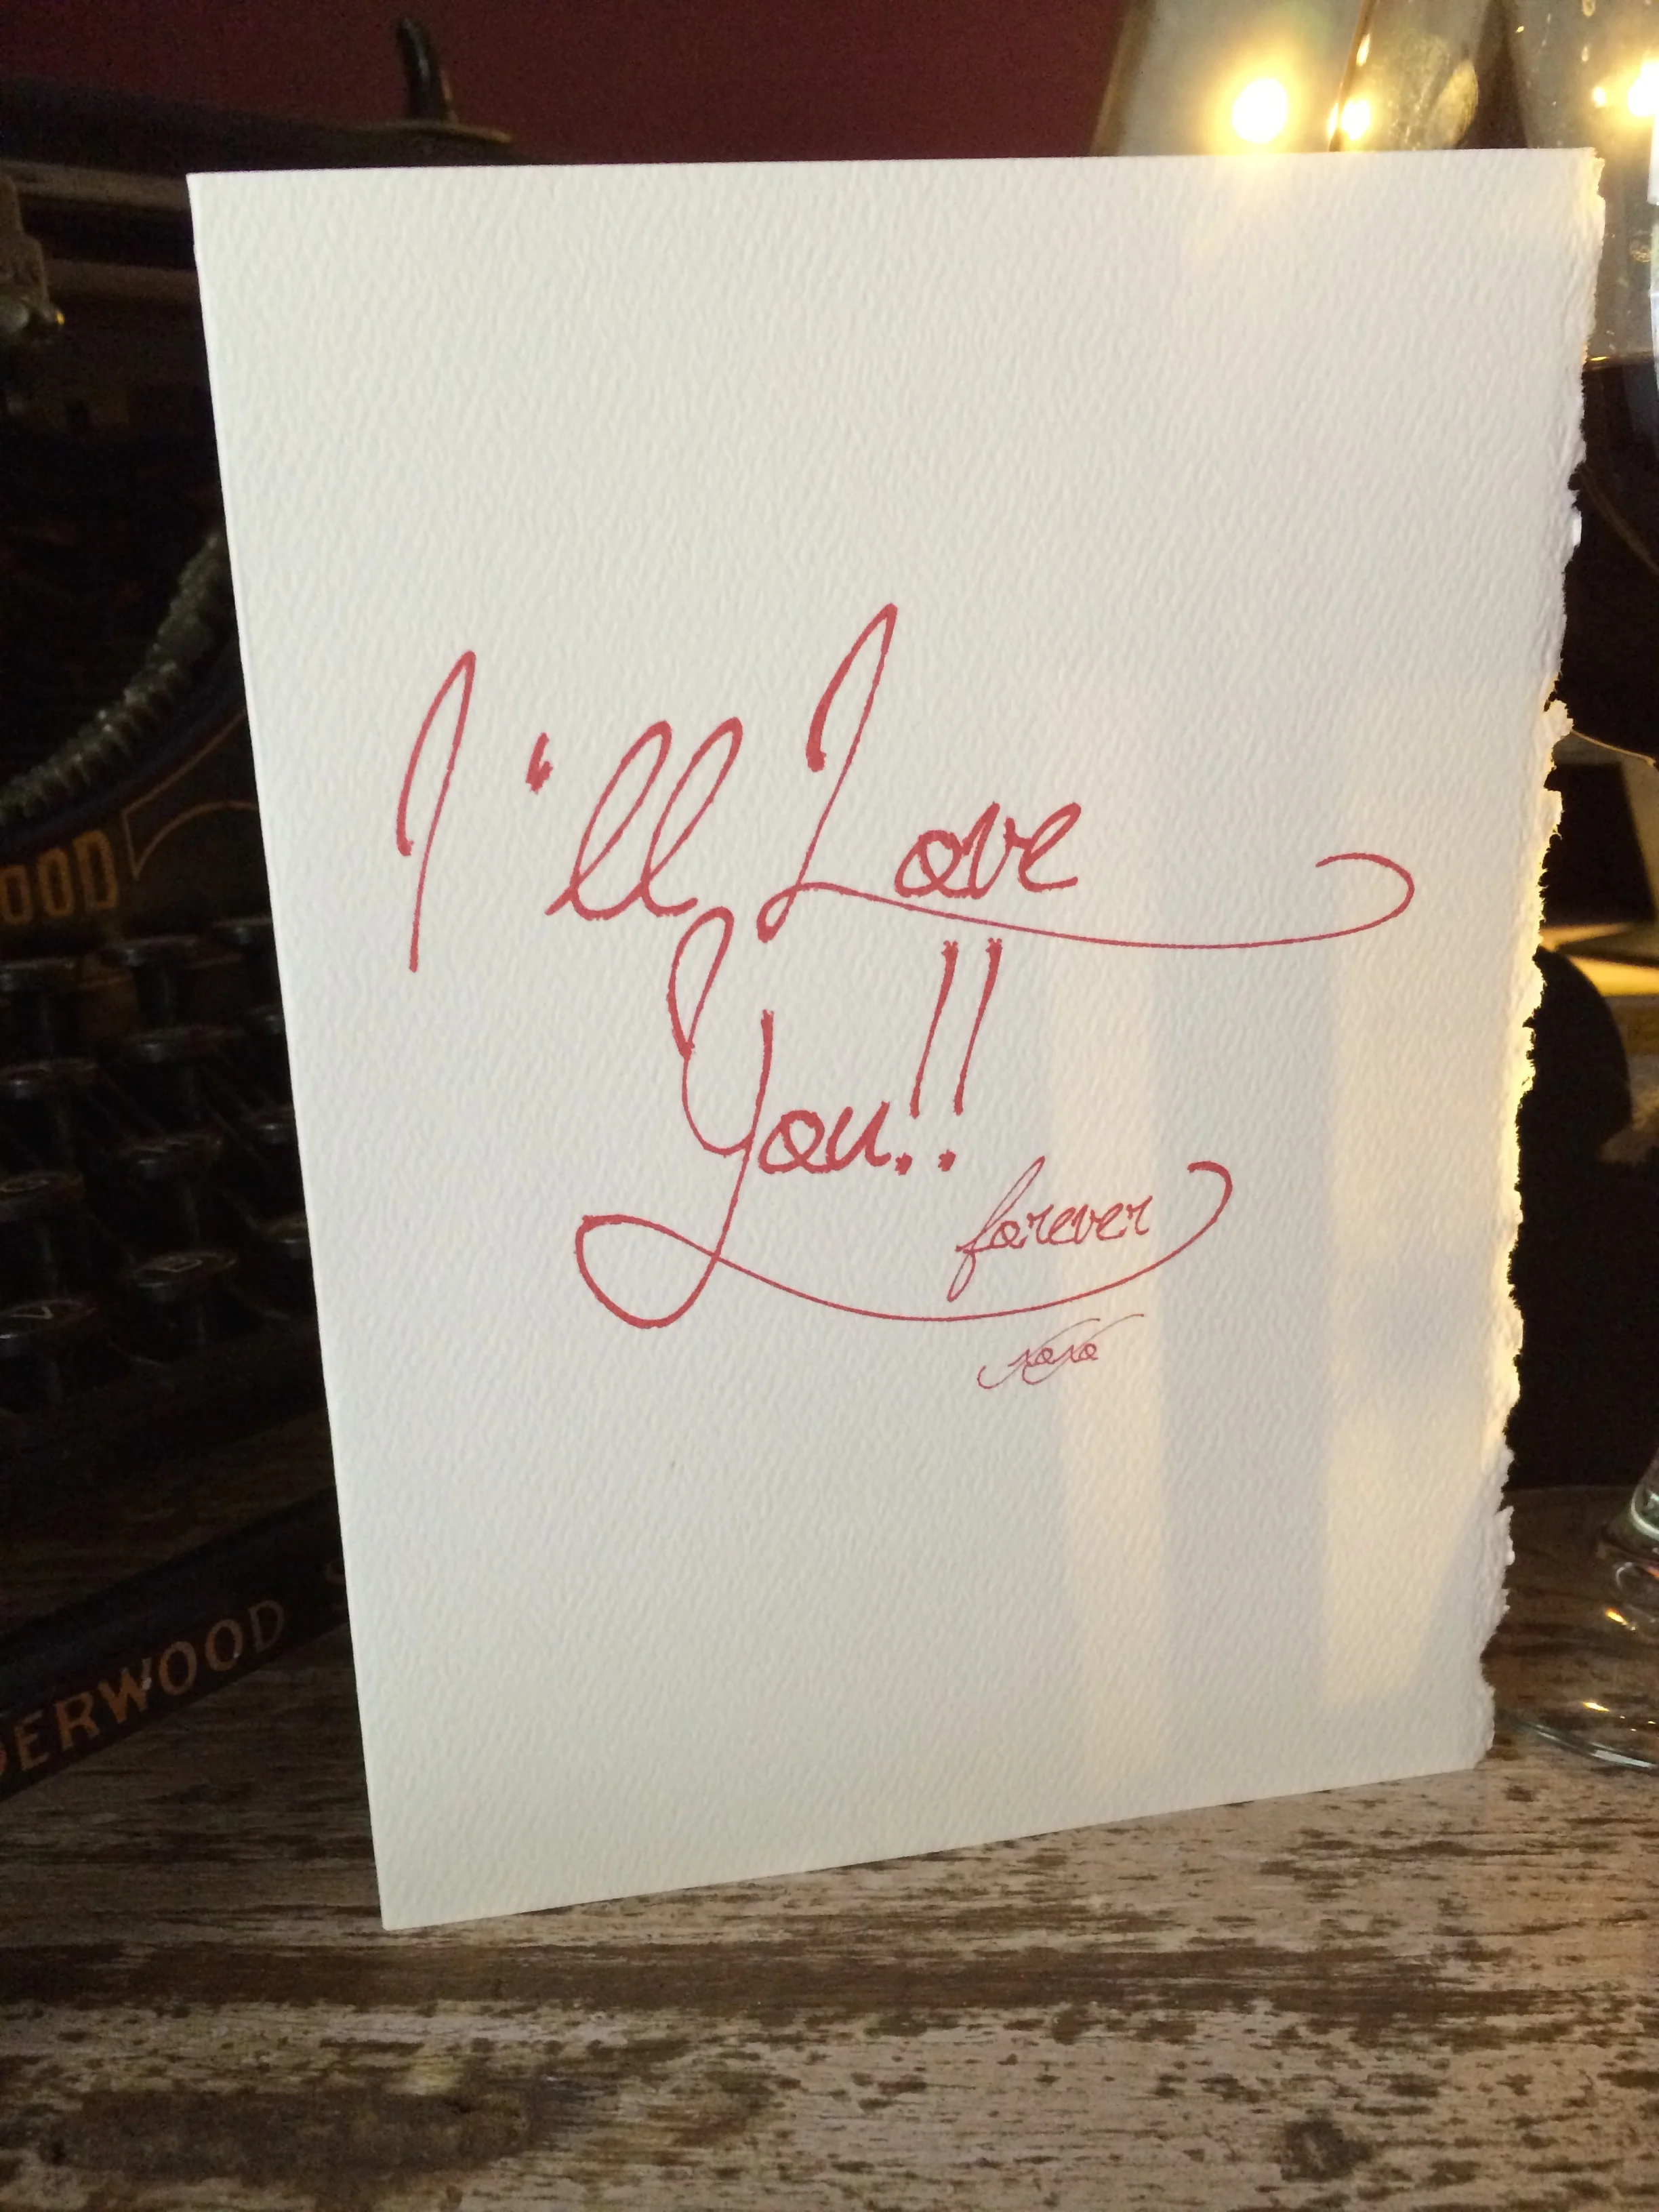 I'll Love
You!!
forever
xoxo
OOD
DERWOOD S